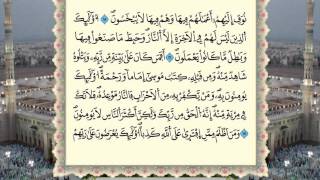 نُوَفِّ إِلَيْهِمْ أَعْمَالَهُمْ فِيهَا وَهُمْ فِيهَا لَا يُبْخَسُونَ أُوْلَٰٓئِكَ
الَّذِينَ لَيْسَ لَهُمْ فِي الْآخِرَةِ إِلَّا النَّارُ وَحَبِطَ مَا صَنَعُوا فِيهَا
وَبَاطِلٌ مَّا كَانُوا يَعْمَلُونَ أَفَمَن كَانَ عَلَىٰ بَيِّنَةٍ مِّن رَّبِّهِ وَيَتْلُوهُ
شَاهِدٌ مِّنْهُ وَمِن قَبْلِهِ كِتَٰبُ مُوسَىٰ إِمَامًا وَرَحْمَةً أُوْلَٰٓئِكَ
يُؤْمِنُونَ بِهِ وَمَن يَكْفُرْ بِهِ مِنَ الْأَحْزَابِ فَالنَّارُ مَوْعِدُهُ فَلَا تَكُ
فِي مِرْيَةٍ مِّنْهُ إِنَّهُ الْحَقُّ مِن رَّبِّكَ وَلَٰكِنَّ أَكْثَرَ النَّاسِ لَا يُؤْمِنُونَ
وَمَنْ أَظْلَمُ مِمَّنِ افْتَرَىٰ عَلَى اللَّهِ كَذِبًا أُوْلَٰٓئِكَ يُعْرَضُونَ عَلَىٰ رَبِّهِمْ